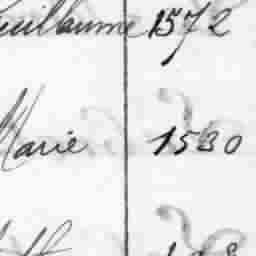 Guillaume 1572
Marie 1580